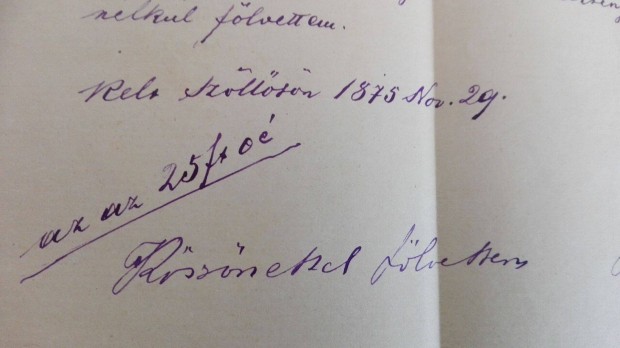 nelkul fölvettem.
Kelt Szöllősön 1875 Nov. 29.
az az 25 ft oć
Köszönettel fölvettem